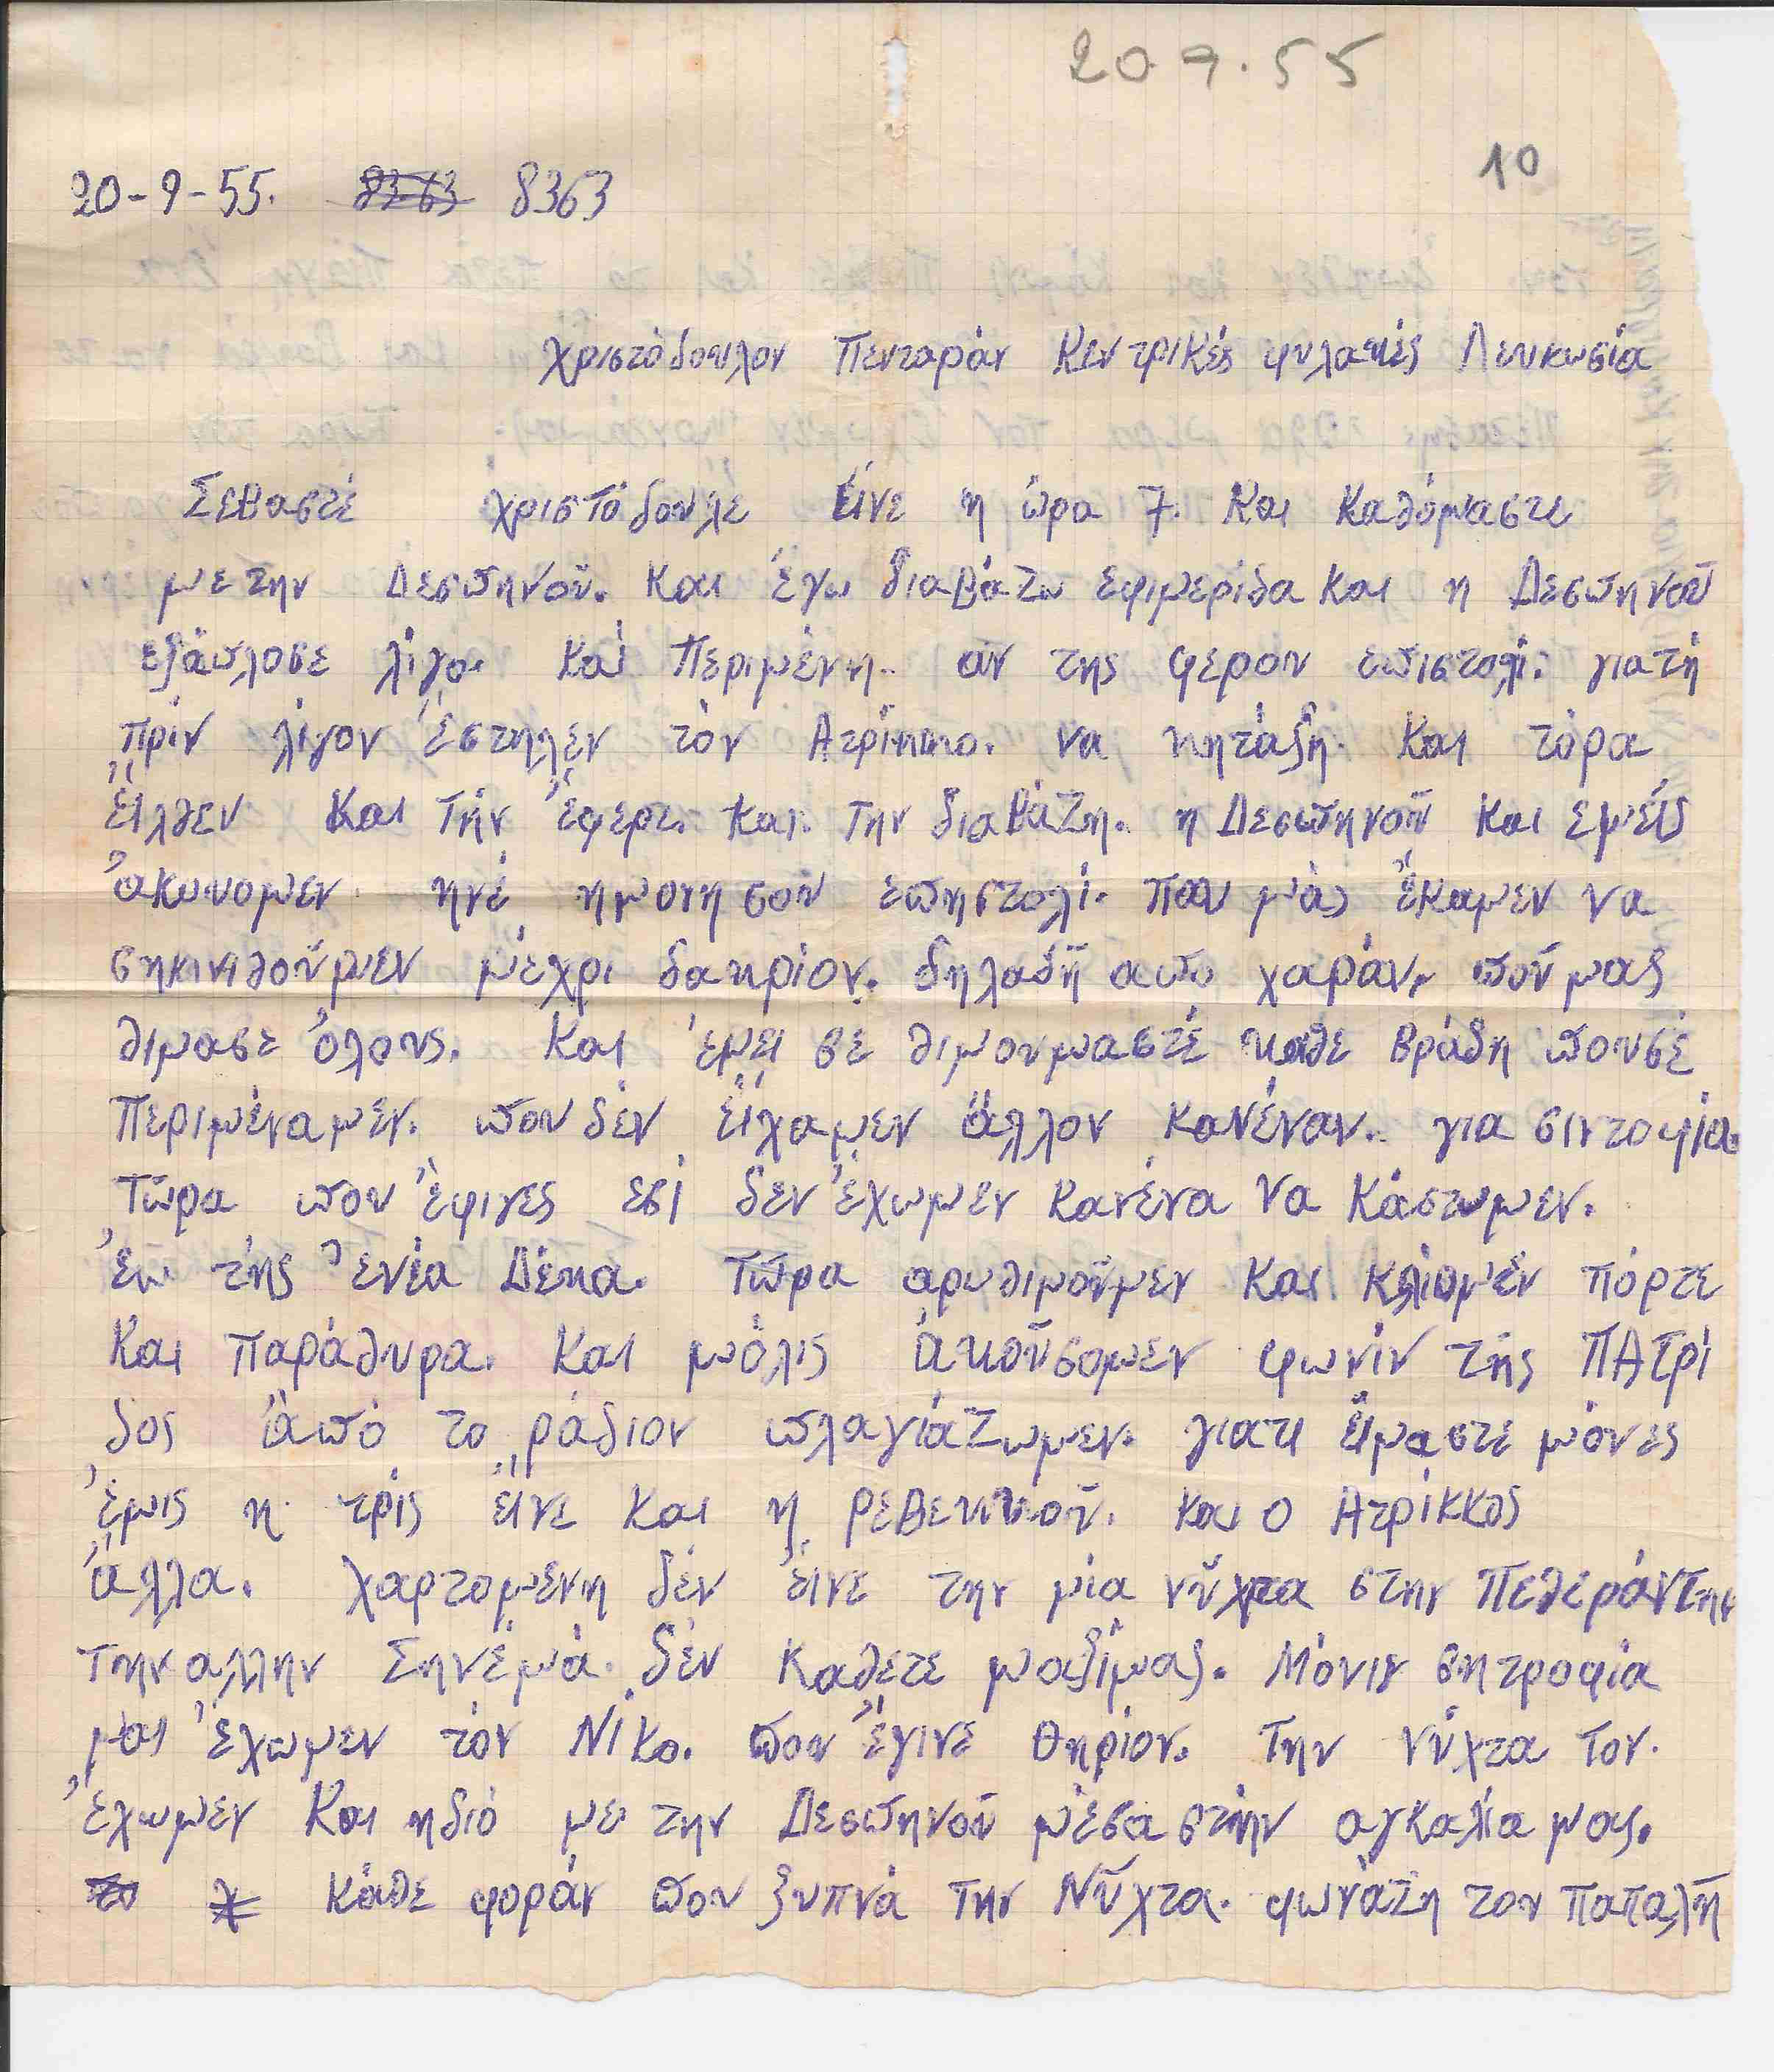 20 9. 55
10
20-9-55. 8363 8363
Χριστόδουλον Πενταράν Κεντρικές φυλακές Λευκωσία
Σεβαστέ χριστόδουλε Είνε η ώρα 7. Και Καθόμαστε
με την Δεσπηνοῦ. Και έγω διαβάζω έφιμερίδα και η Δεσπηνοῦ
εξάπλοσε λίγο. Και Περιμένη. αν της φερον επιστολί. γιατή
πρίν λίγον Έστηλεν τόν Ατρίκκο. να κητάξη. Και τόρα
Εἴλθεν Και τήν Έφερε. Και. την διαβάζη. η Δεσπηνοῦ Και εμείς
ἀκουομεν ηνέ ημονη σου επηστολί. που μάς Έκαμεν να
σηκινιθοῦμεν μέχρι δακρίον. δηλαδή απο χαράν, ποῦ μας
θιμασε ὅλους. Και έμει σέ θιμουμαστέ καθε βράδη που σέ
Περιμέναμεν. που δέν Εἴχαμεν ἄλλον κανέναν. για σιντοφία
Τῶρα που Έφιγες εσί δεν Έχωμεν κανένα να Κάστωμεν.
Έω τής Ένέα Δέκα. Τῶρα αρυθιμοῦμεν Και κλίομέν πόρτε
Και παράθυρα. Και μόλις ἀκοῦσομεν φωνίν τής ΠΑτρί
δος Ἀπό το ράδιον πλαγιάζωμεν. γιατι εἴμαστέ μόνες
Έμις η τρίς εἴνε Και η ρεβεκκοῦ. Και ο Ατρίκκος
ἄλλα. χαρτομένη δέν εἴνε την μία νῦχτα στην Πεθεράν της
την αλλην Σηνέμά. δέν Καθετε μαξίμας. Μόνιν σητροφία
μας Έχωμεν τόν Νίκο. που Έγινέ θηρίον. Την νύχτα τον.
Έχωμεν Και ηδιό με την Δεσπηνοῦ μέσα στήν αγκαλιά μας.
το Κάθε φοράν που ξυπνά την Νῦχτα. φωνάζη τον παπαλῆ